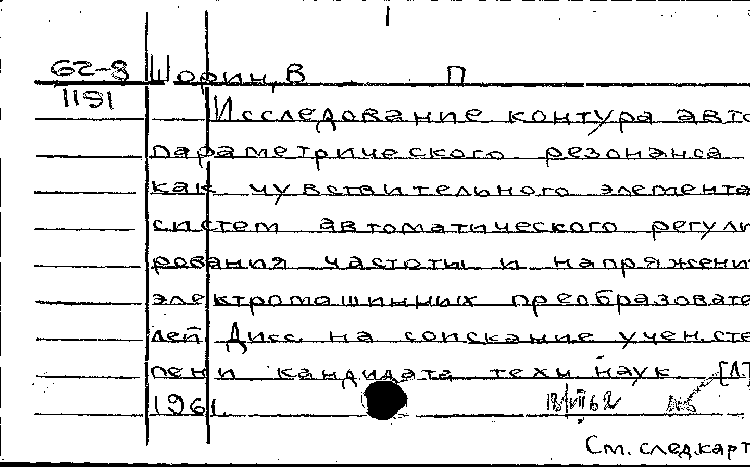 62-8 Шорин, В П
1191
Исследование контура авто
параметрического резонанса
как чувствительного элемента
систем автоматического регули
рования частоты и напряжени
электромашинных преобразовате
лей Дисс. на соискание учен.сте
пени кандидата техн. наук. [Л]
1961.
См. след.карт